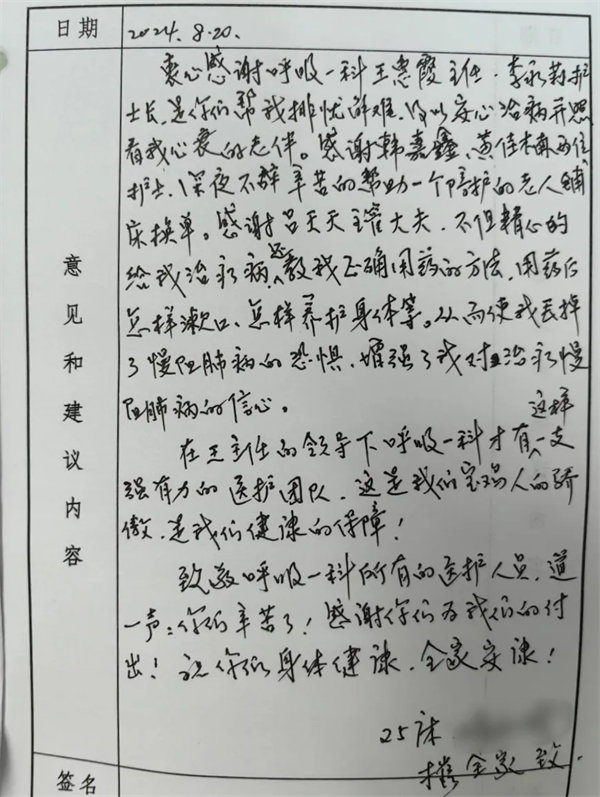 日期 2024.8.20.
意见和建议内容
衷心感谢呼吸一科王惠霞主任、李永莉护
士长,是你们帮我排忧解难,得以安心治病并照
看我心衰的老伴。感谢韩嘉鑫、黄佳楠两位
护士,深夜不辞辛苦的帮助一个陪护的老人铺
床换单。感谢吕天天主管大夫,不但精心的
给我治病,还教我正确用药的方法,用药后
怎样漱口、怎样养护身体等。从而使我丢掉
了慢阻肺病的恐惧,增强了我对治疗慢
阻肺病的信心。
在王主任的领导下呼吸一科才有这样一支
强有力的医护团队,这是我们宝鸡人的骄
傲,是我们健康的保障!
致敬呼吸一科所有的医护人员,道
一声:你们辛苦了!感谢你们为我们的付
出!祝你们身体健康,全家安康!
25床
携全家致
签名